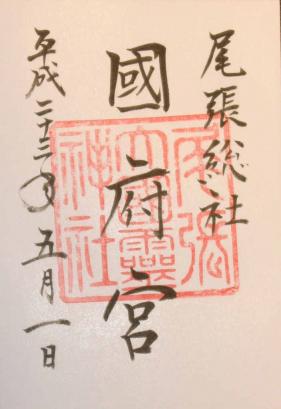 尾張総社
國府宮
平成二十三年五月一日
尾張
大國霊
神社